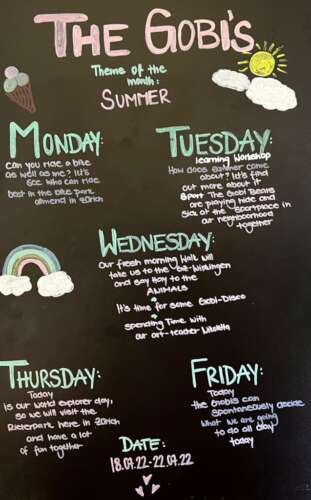 THE GOBI'S
Theme of the
month:
SUMMER
MONDAY:
Can you ride a bike
as well as me? It's
see who can ride
best in the bike park
almend in Zürich
TUESDAY:
Learning Workshop
How does summer come
about? Let's find
out more about it
Sport The Gobi Bears
are playing hide and
sick at the Sportplace in
our neighborhood
together
WEDNESDAY:
our fresh morning Walk will
take us to the
and say Hay to the
ANIMALS
It's time for some Gobi-Disco
spending Time with
our art-teacher
THURSDAY:
Today
is our world explorer day,
so we will visit the
Rieterpark here in Zürich
and have a lot
of fun together
FRIDAY:
Today
the Gobis can
spontaneously decide
what we are going
to do all day
today
DATE:
18.07.22-22.07.22